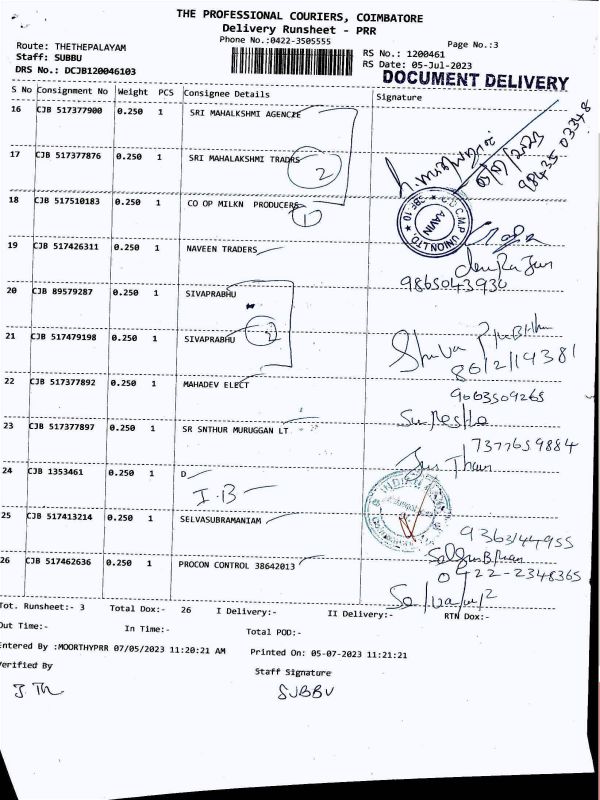 THE PROFESSIONAL COURIERS, COIMBATORE
Delivery Runsheet - PRR
Phone No.:0422-3505555
Page No.:3
Route: THETHEPALAYAM
RS No.: 1200461
Staff: SUBBU
RS Date: 05-Jul-2023
DRS No.: DCJB120046103
DOCUMENT DELIVERY
S No Consignment No Weight PCS Consignee Details Signature
16 CJB 517377900 0.250 1 SRI MAHALKSHMI AGENCIE
17 CJB 517377876 0.250 1 SRI MAHALAKSHMI TRADRS
2
98435 03348
18 CJB 517510183 0.250 1 CO OP MILKN PRODUCERS
1
C.M.P UNION LTD
AAVIN
19 CJB 517426311 0.250 1 NAVEEN TRADERS
9865043930
20 CJB 89579287 0.250 1 SIVAPRABHU
21 CJB 517479198 0.250 1 SIVAPRABHU
2
Shiva Prabhu
8012114381
22 CJB 517377892 0.250 1 MAHADEV ELECT
9003509265
23 CJB 517377897 0.250 1 SR SNTHUR MURUGGAN LT
7377659884
24 CJB 1353461 0.250 1 D
I.B
25 CJB 517413214 0.250 1 SELVASUBRAMANIAM
9363144955
26 CJB 517462636 0.250 1 PROCON CONTROL 38642013
0422-2348365
Tot. Runsheet:- 3 Total Dox:- 26 I Delivery:- II Delivery:- RTN Dox:-
Out Time:- In Time:- Total POD:-
Entered By :MOORTHYPRR 07/05/2023 11:20:21 AM Printed On: 05-07-2023 11:21:21
Verified By Staff Signature
SUBBU